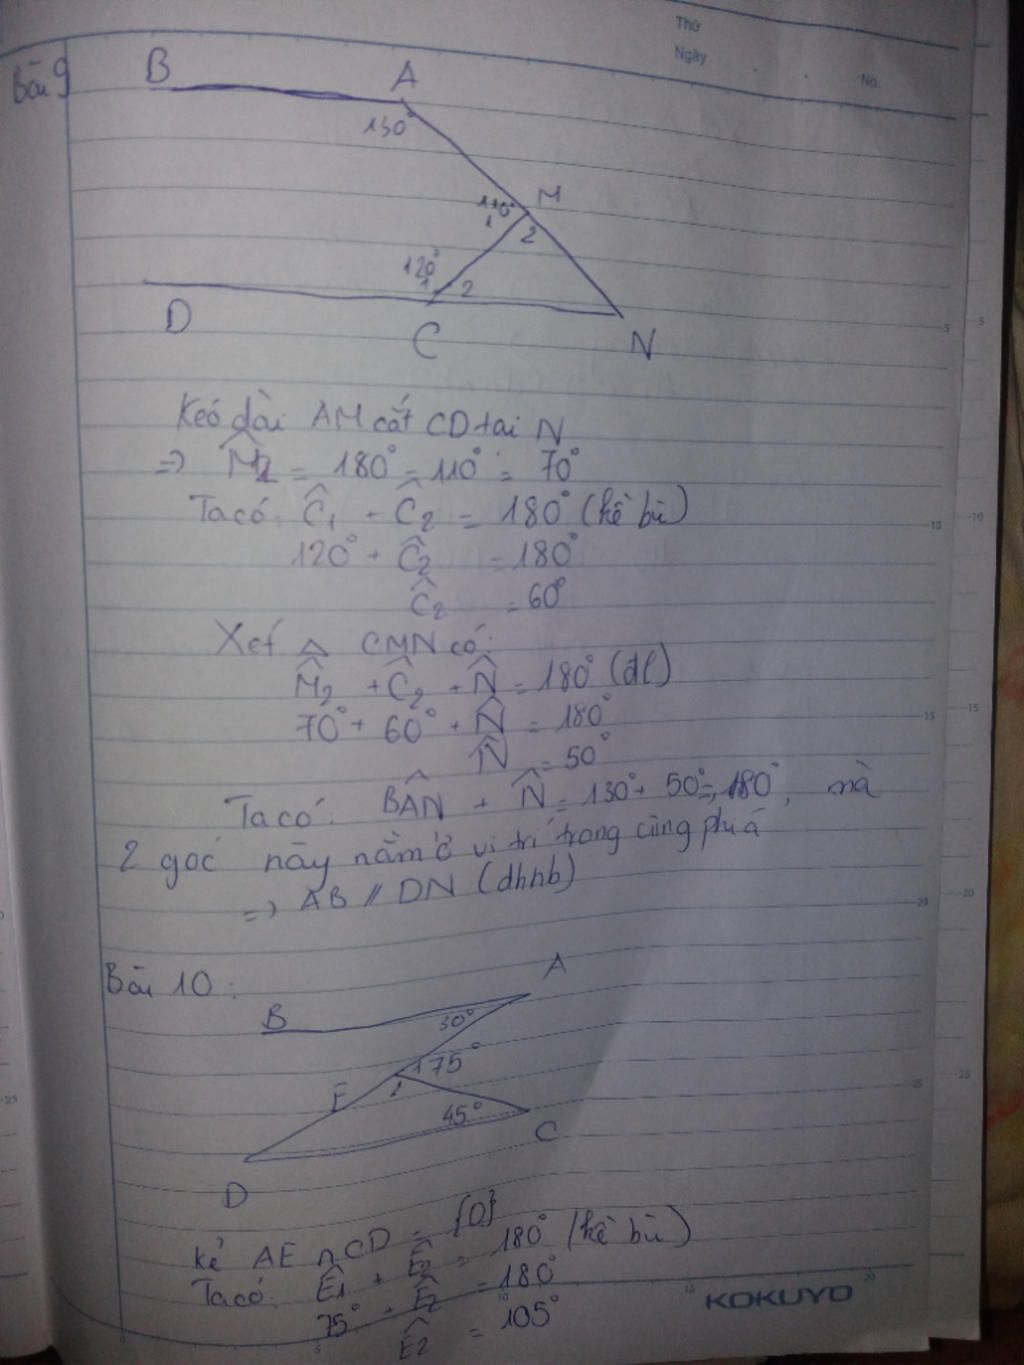 Thứ
Ngày
No.
Bài 9
B
A
130°
110°
1
M
2
120°
1
2
D
C
N
Kéo dài AM cắt CD tai N
=> M̂2 = 180° - 110° = 70°
Ta có: Ĉ1 + Ĉ2 = 180° (kề bù)
120° + Ĉ2 = 180°
Ĉ2 = 60°
Xét △ CMN có:
M̂2 + Ĉ2 + N̂ = 180° (đl)
70° + 60° + N̂ = 180°
N̂ = 50°
Ta có: BÂN + N̂ = 130° + 50° = 180°, mà
2 góc này nằm ở vị trí trong cùng phía
=> AB // DN (dhnb)
Bài 10:
A
B
30°
175°
E
2
45°
C
D
kẻ AE ∩ CD = {D}
Ta có: Ê1 + Ê2 = 180° (kề bù)
75° + Ê2 = 180°
Ê2 = 105°
KOKUYO